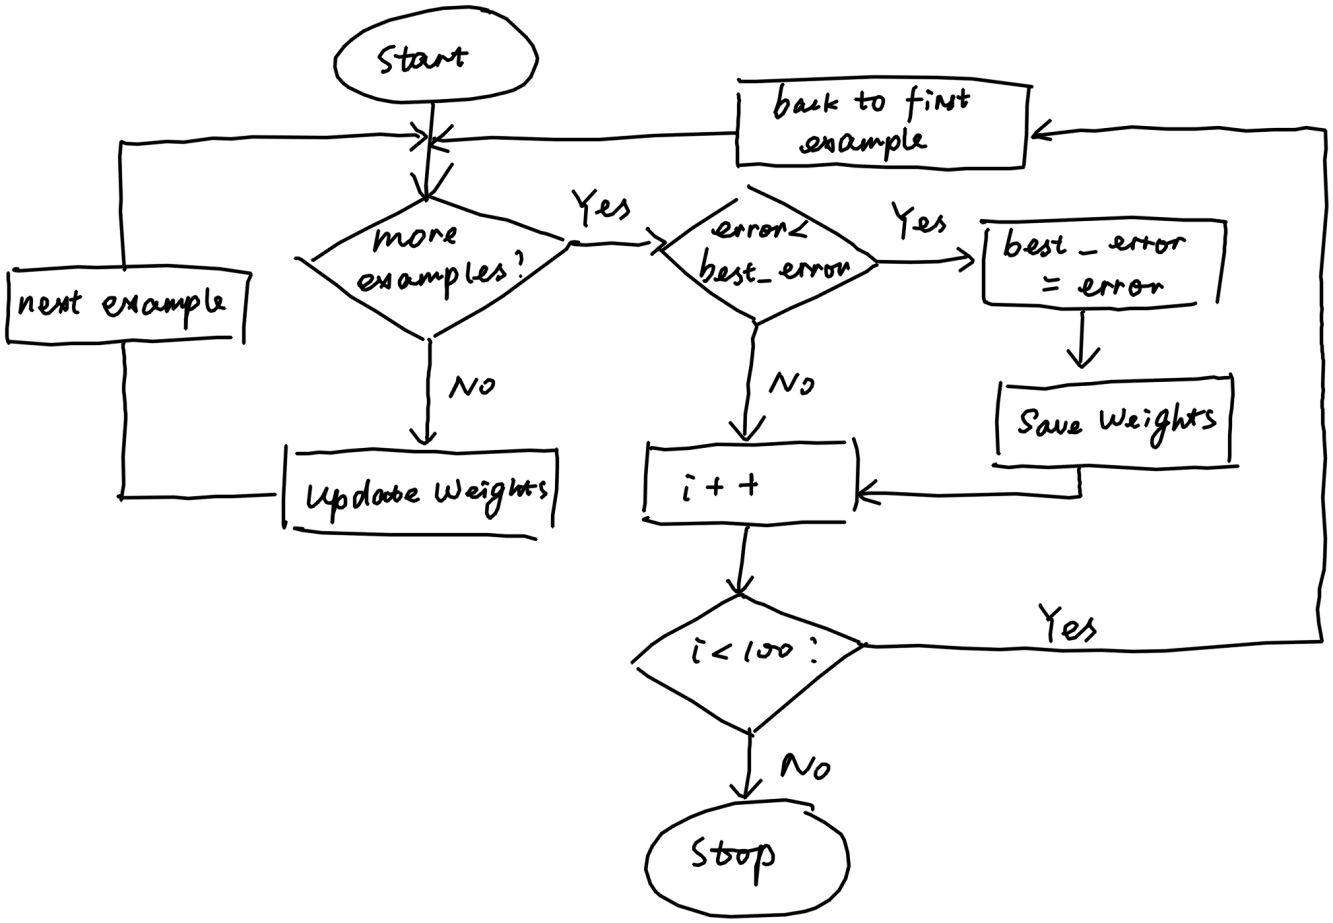 Start
back to first
example
more
examples?
Yes
error<
best_error
Yes
best_error
= error
next example
No
No
Save Weights
Update Weights
i++
i<100?
Yes
No
Stop